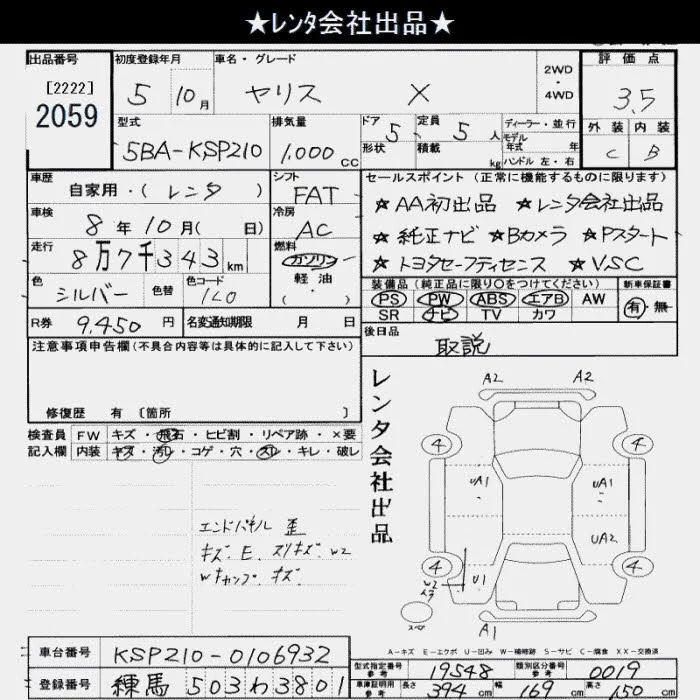 ★レンタ会社出品★
出品番号 初度登録年月 車名・グレード 2WD・4WD 評価点
[2222]
2059
5 10月 ヤリス X 3.5
型式 排気量 ドア 定員 ディーラー・並行 外装 内装
5BA-KSP210 1,000cc 5 5人 モデル年式 年 C B
形状 積載 kg ハンドル 左・右
車歴 シフト セールスポイント(正常に機能するものに限ります)
自家用・(レンタ) FAT ★AA初出品 ★レンタ会社出品
車検 冷房
8年10月(日) AC ★純正ナビ ★Bカメラ ★Pスタート
走行 燃料
8万7千343km ガソリン ★トヨタセーフティセンス ★VSC
軽油
色 色替 色コード ・( ) 装備品(純正品に限り○をつけてください) 新車保証書
シルバー 1L0 PS PW ABS エアB AW 有・無
SR ナビ TV カワ
R券 9,450円 名変通知期限 月 日 後日品
取説
注意事項申告欄(不具合内容等は具体的に記入して下さい)
修復歴 有〔箇所 〕
検査員 FW キズ・飛石・ヒビ割・リペア跡・×要
記入欄 内装 キズ・汚レ・コゲ・穴・スレ・キレ・破レ
エンドパネル 歪
キズ.E.スリキズ.W2
Wキャップ キズ
レンタ会社出品
A2 A2
4 4
UA1 UA1
UA2
4 4
W2 U1
スペア
A1
A-キズ E-エクボ U-凹み W-補修跡 S-サビ C-腐食 XX-交換済
車台番号 KSP210-0106932
型式指定番号 参考 19548 類別区分番号 参考 0019
登録番号 練馬503わ3801
車庫証明用 参考 長さ 394cm 幅 169cm 高さ 150cm